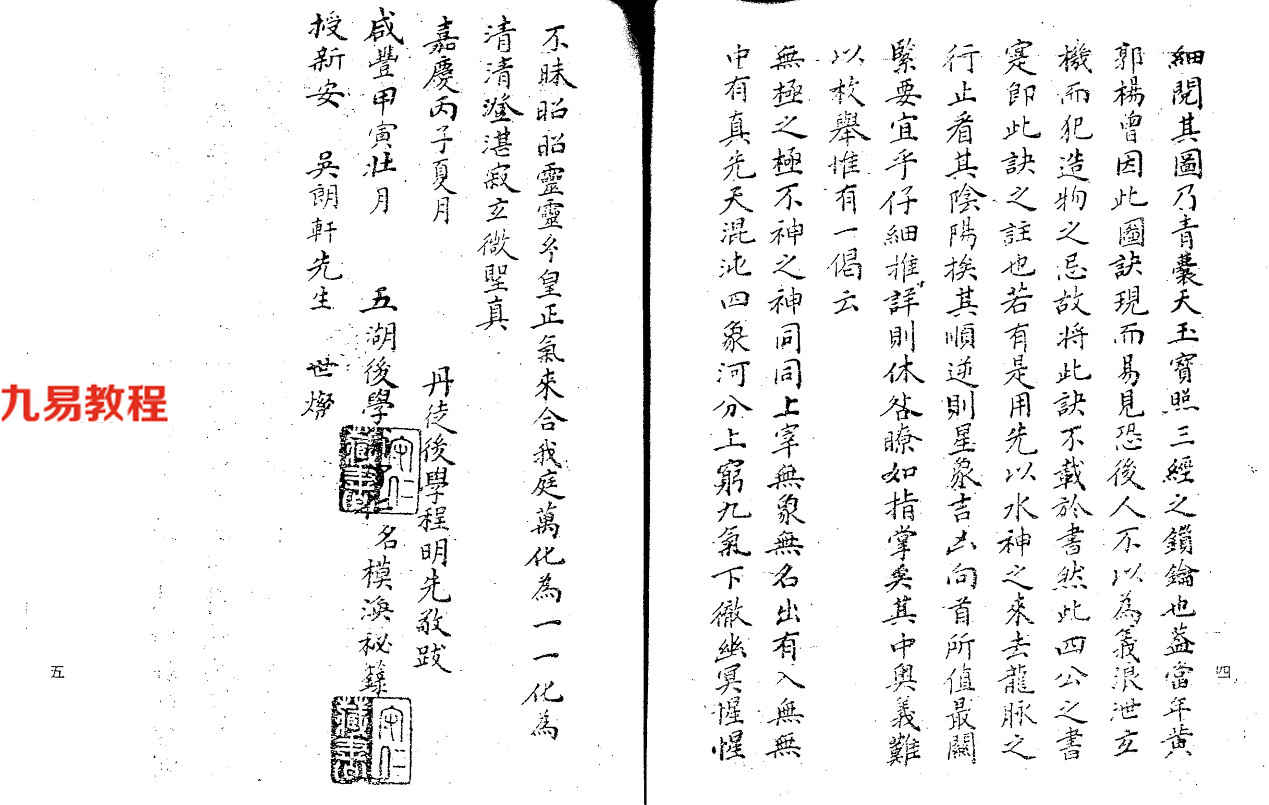 細閱其圖乃青囊天玉寶照三經之鎖鑰也蓋當年黃
郭楊曾因此圖訣現而易見恐後人不以為義浪泄玄
機而犯造物之忌故將此訣不載於書然此四公之書
寔即此訣之註也若有是用先以水神之來去龍脉之
行止看其陰陽挨其順逆則星象吉凶向首所值最關
緊要宜乎仔細推詳則休咎瞭如指掌矣其中奧義難
以枚舉惟有一偈云
無極之極不神之神同同上宰無象無名出有入無無
中有真先天混沌四象河分上窮九氣下徹幽冥惺惺
四
不昧昭昭靈靈兮皇正氣來合我庭萬化為一一化為
清清澄湛寂玄微聖真
嘉慶丙子夏月 丹徒後學程明先敬跋
咸豐甲寅壯月 五湖後學 名模渙秘籙
授新安 吳朗軒先生 世
五
九易教程